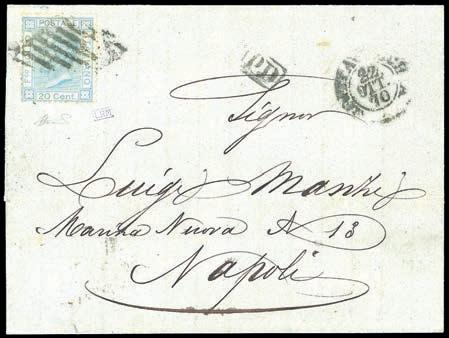 POSTALE
20 Cent.
PD
22
OTT
70
Signor
Luigi
Marina Nuova N 13
Napoli